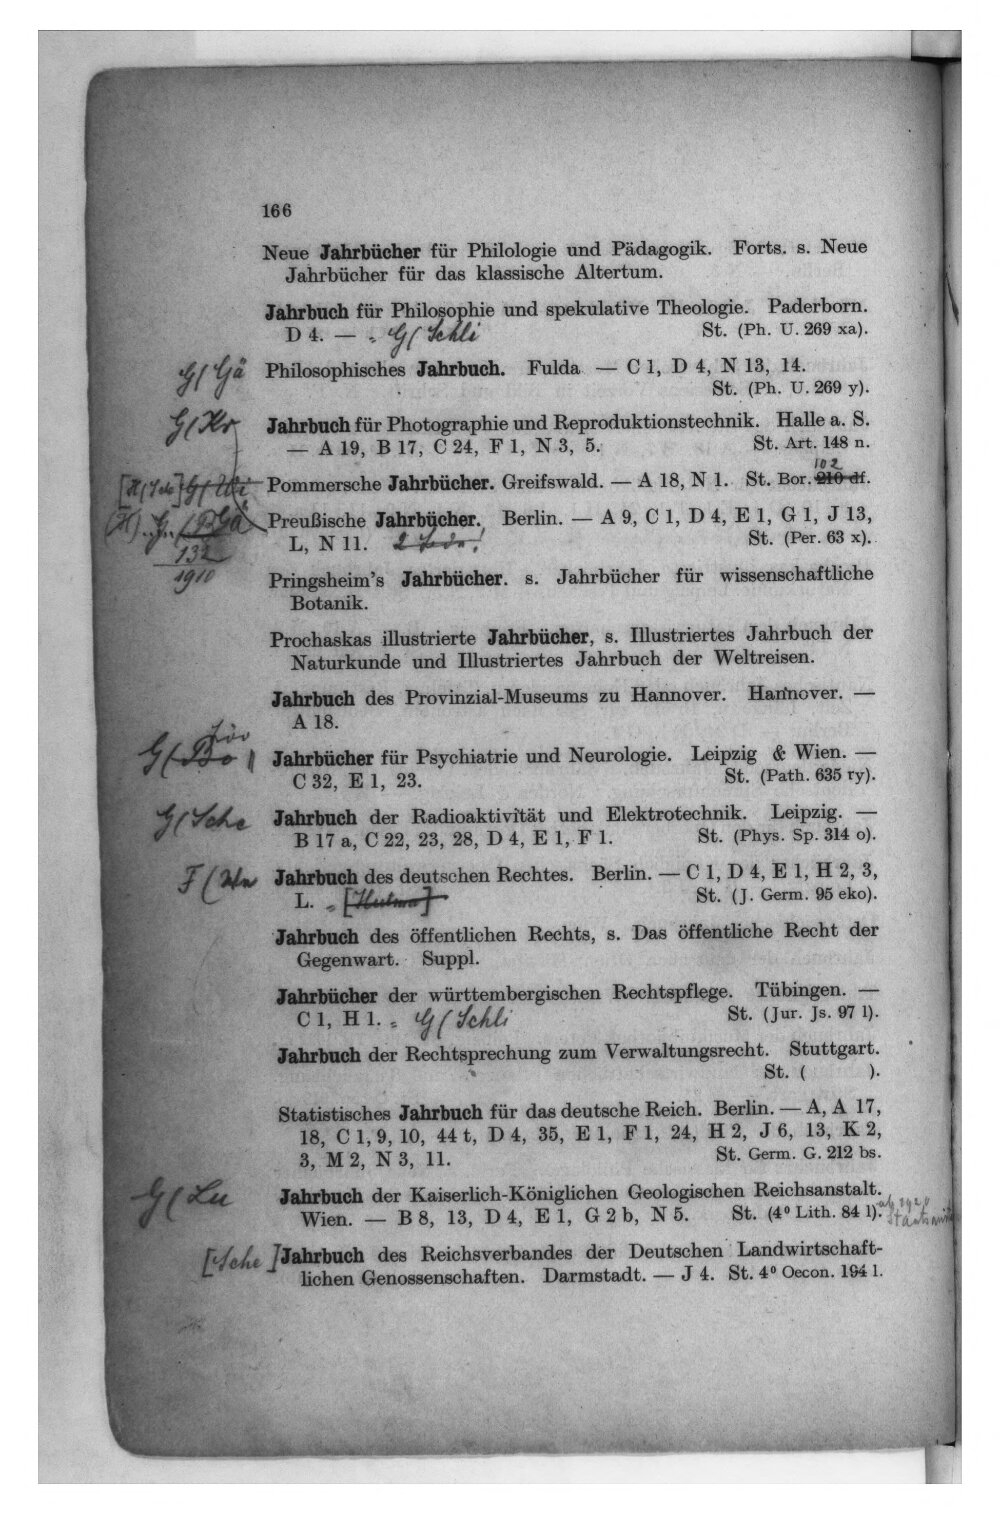 166
Neue Jahrbücher für Philologie und Pädagogik. Forts. s. Neue
Jahrbücher für das klassische Altertum.
Jahrbuch für Philosophie und spekulative Theologie. Paderborn.
D 4. — G(Schli St. (Ph. U. 269 xa).
G(Gä Philosophisches Jahrbuch. Fulda — C 1, D 4, N 13, 14.
St. (Ph. U. 269 y).
G(Kr Jahrbuch für Photographie und Reproduktionstechnik. Halle a. S.
— A 19, B 17, C 24, F 1, N 3, 5. St. Art. 148 n.
102
Pommersche Jahrbücher. Greifswald. — A 18, N 1. St. Bor. 210 df.
Preußische Jahrbücher. Berlin. — A 9, C 1, D 4, E 1, G 1, J 13,
L, N 11. St. (Per. 63 x).
132
1910
Pringsheim's Jahrbücher. s. Jahrbücher für wissenschaftliche
Botanik.
Prochaskas illustrierte Jahrbücher, s. Illustriertes Jahrbuch der
Naturkunde und Illustriertes Jahrbuch der Weltreisen.
Jahrbuch des Provinzial-Museums zu Hannover. Hannover. —
A 18.
G(Bo Jahrbücher für Psychiatrie und Neurologie. Leipzig & Wien. —
C 32, E 1, 23. St. (Path. 635 ry).
G(Sche Jahrbuch der Radioaktivität und Elektrotechnik. Leipzig. —
B 17 a, C 22, 23, 28, D 4, E 1, F 1. St. (Phys. Sp. 314 o).
Jahrbuch des deutschen Rechtes. Berlin. — C 1, D 4, E 1, H 2, 3,
L. St. (J. Germ. 95 eko).
Jahrbuch des öffentlichen Rechts, s. Das öffentliche Recht der
Gegenwart. Suppl.
Jahrbücher der württembergischen Rechtspflege. Tübingen. —
C 1, H 1. G(Schli St. (Jur. Js. 97 l).
Jahrbuch der Rechtsprechung zum Verwaltungsrecht. Stuttgart.
St. ( ).
Statistisches Jahrbuch für das deutsche Reich. Berlin. — A, A 17,
18, C 1, 9, 10, 44 t, D 4, 35, E 1, F 1, 24, H 2, J 6, 13, K 2,
3, M 2, N 3, 11. St. Germ. G. 212 bs.
G(Lu Jahrbuch der Kaiserlich-Königlichen Geologischen Reichsanstalt.
Wien. — B 8, 13, D 4, E 1, G 2 b, N 5. St. (4⁰ Lith. 84 l).
[Sche] Jahrbuch des Reichsverbandes der Deutschen Landwirtschaft-
lichen Genossenschaften. Darmstadt. — J 4. St. 4⁰ Oecon. 194 l.